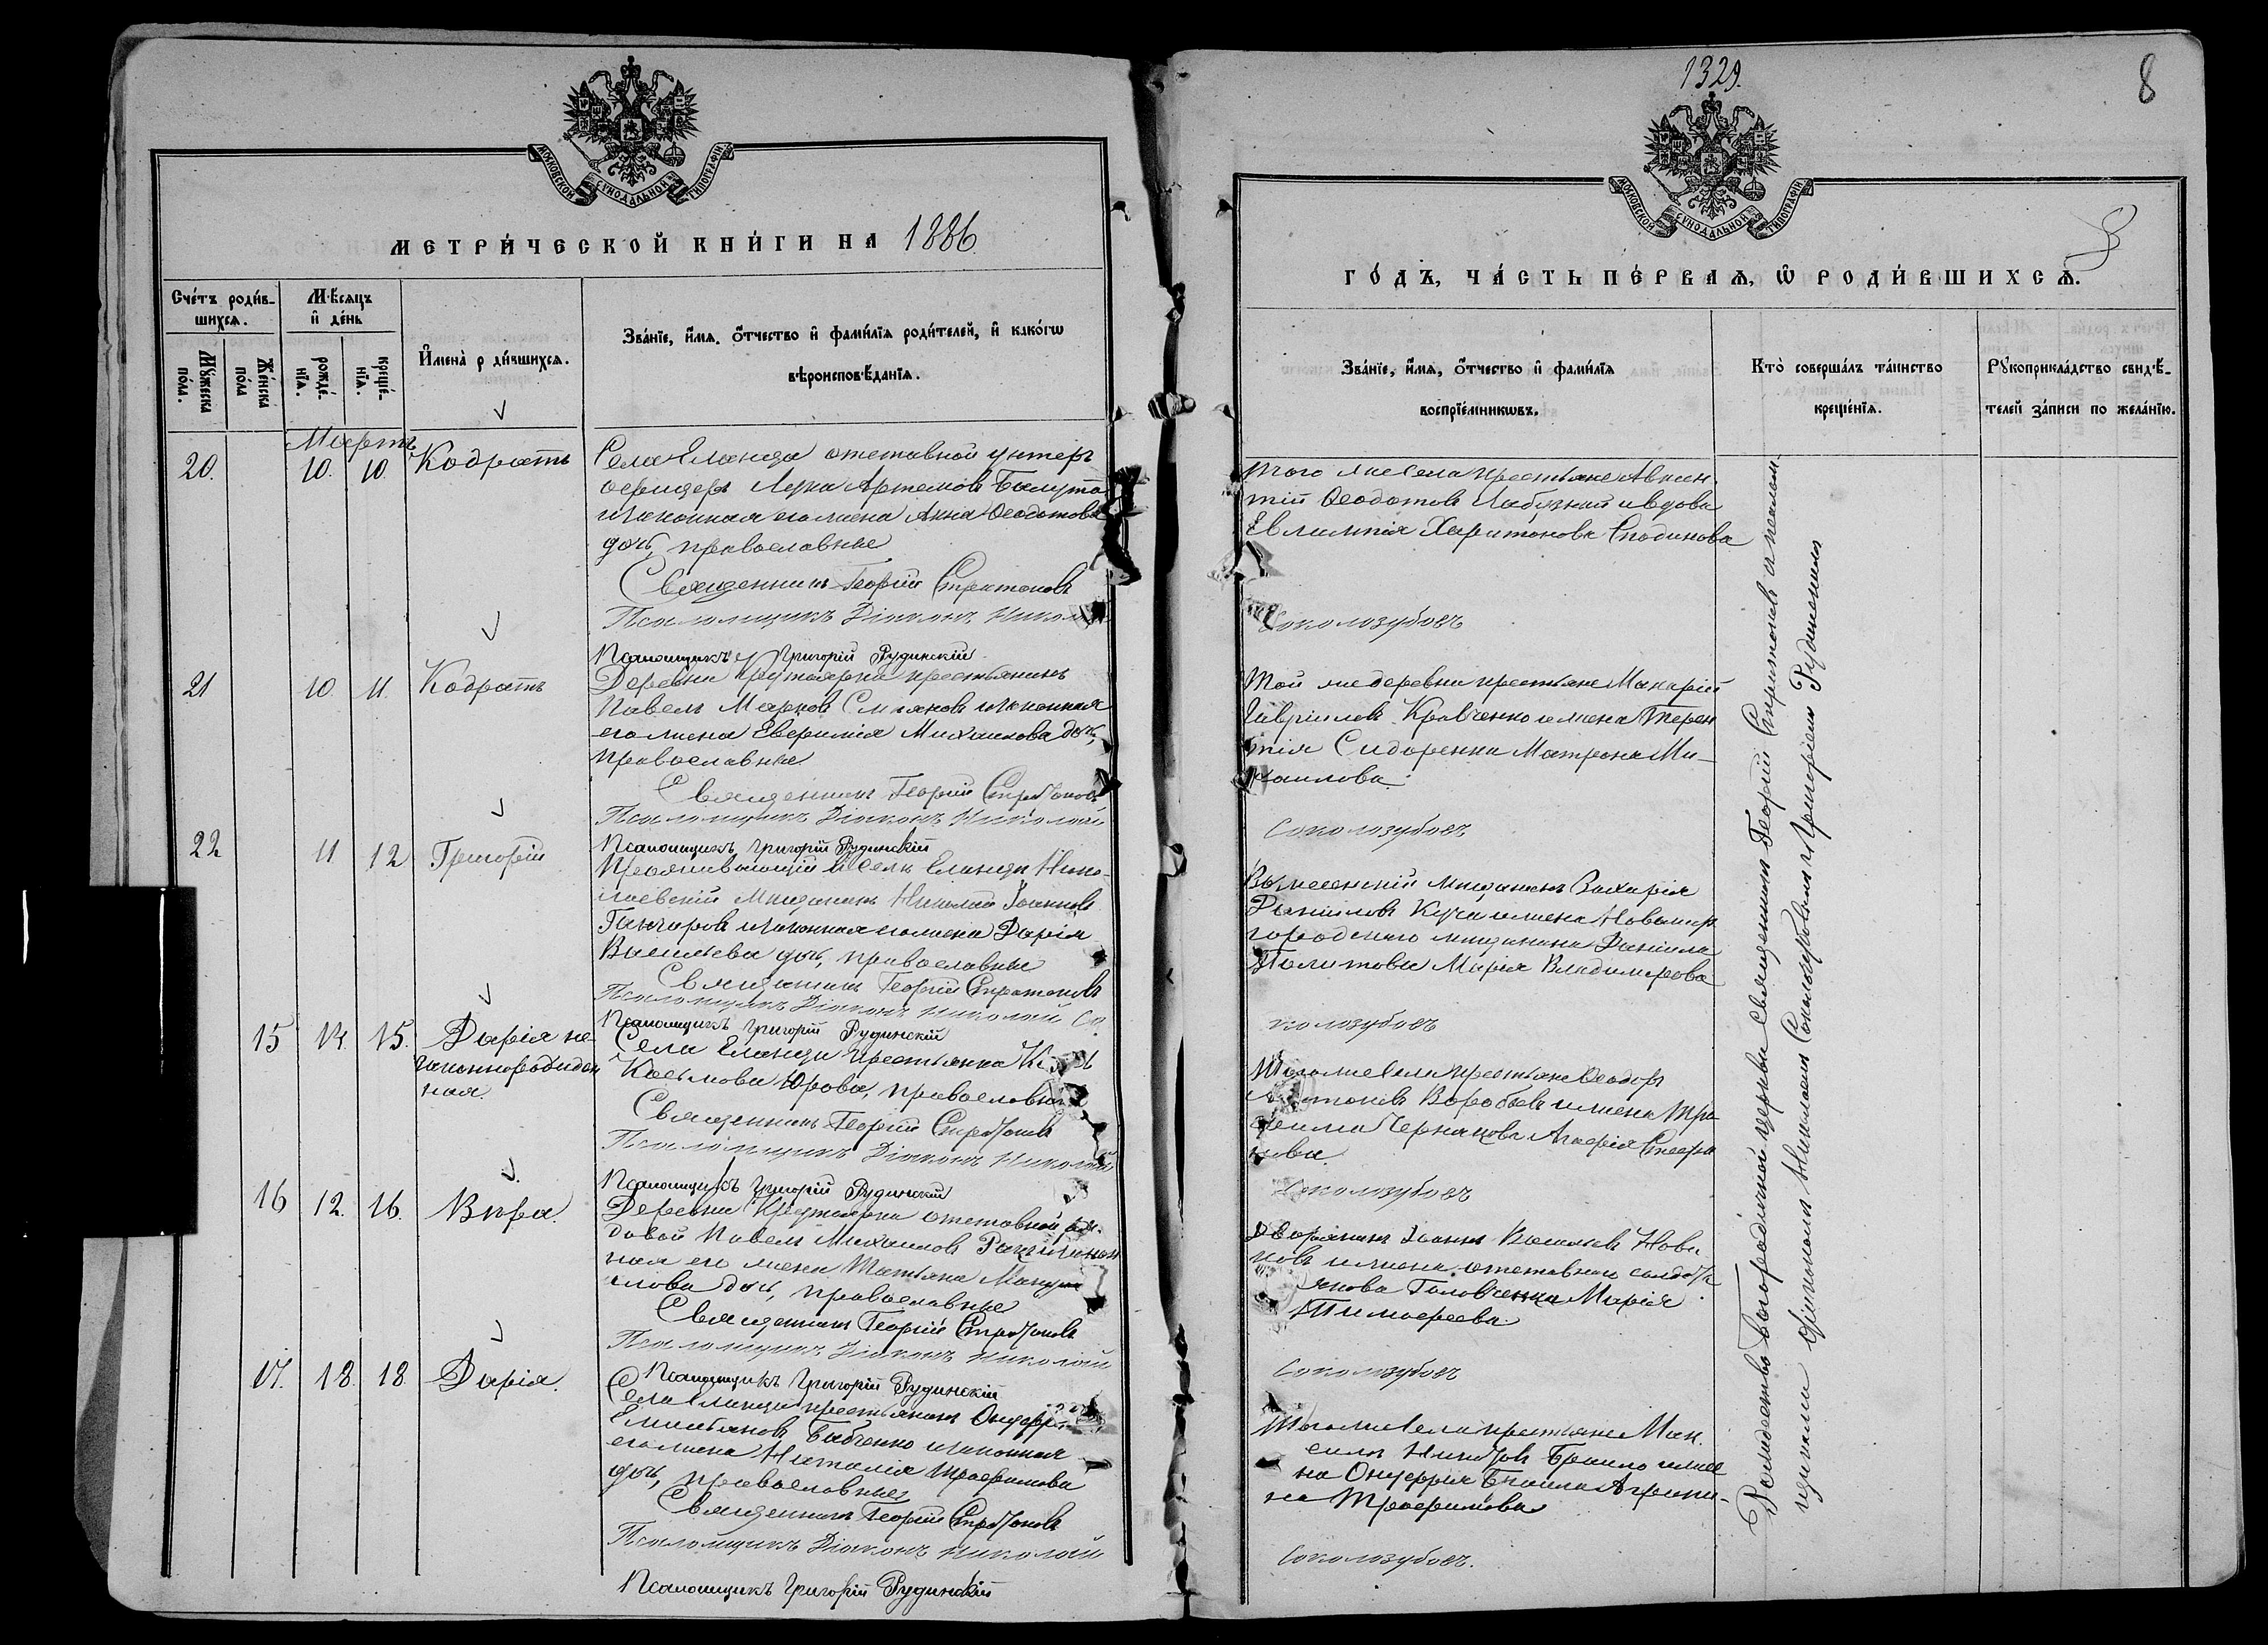 МОСКОВСКОЙ СѴНОДАЛЬНОЙ ТИПОГРАФІИ
МЕТРИ́ЧЕСКОЙ КНИ́ГИ НА 1886.
Сче́тъ роди́в-
шихсѧ.
Мѣсѧцъ
и де́нь
Мꙋ́жеска
по́ла.
Же́нска
по́ла
рожде́-
нїѧ.
креще́-
нїѧ.
Имена̀ р ди́вшихсѧ.
Зва́нїе, и́мѧ, о́тчество и фами́лїѧ роди́телей, и како́гѡ
вѣроисповѣ́данїѧ.
Мартъ
20. 10. 10. Кодратъ
Села Еланца отставной унтеръ
офицеръ Лука Артемовъ
законная его жена Анна Ѳеодотова
дочь, православные
Священникъ Георгій Стратоновъ
Псаломщикъ Діаконъ Никол
Псаломщикъ Григорій Рудинскій
21 10. 11. Кодратъ
Деревни Крутоярка крестьянинъ
Павелъ Марковъ законная
его жена Евфимія Михаилова дочь,
православные
Священникъ Георгій Стратоновъ
Псаломщикъ Діаконъ Николай
Псаломщикъ Григорій Рудинскій
22 11 12 Григорій
Проживающій въ селѣ Еланцѣ Нико-
лаевскій мѣщанинъ Николай Іоанновъ
Ганчаровъ и законная его жена Дарія
Васильева дочь, православные
Священникъ Георгій Стратоновъ
Псаломщикъ Діаконъ Николай Со
Псаломщикъ Григорій Рудинскій
15 14. 15. Дарія не-
законнорожден
ная.
Села Еланца крестьянка
Косьмова Юрова, православная
Священникъ Георгій Стратоновъ
Псаломщикъ Діаконъ Николай
Псаломщикъ Григорій Рудинскій
16 12. 16. Вѣра.
Деревни Крутоярка отставной ря-
довой Павелъ Михаиловъ
ная его жена Татьяна
дочь, православные
Священникъ Георгій Стратоновъ
Псаломщикъ Діаконъ Николай
Псаломщикъ Григорій Рудинскій
17. 18. 18. Дарія.
Села Еланца крестьянинъ
Емильяновъ Бабченко и законная
его жена Наталія Трофимова
дочь, православные
Священникъ Георгій Стратоновъ
Псаломщикъ Діаконъ Николай
Псаломщикъ Григорій Рудинскій
1329.
8
МОСКОВСКОЙ СѴНОДАЛЬНОЙ ТИПОГРАФІИ
ГО́ДЪ, ЧА́СТЬ ПЕ́РВАѦ, Ѡ РОДИ́ВШИХСѦ.
Зва́нїе, и́мѧ, о́тчество и фами́лїѧ
воспрїе́мникѡвъ.
Кто̀ соверша́лъ та́инство
креще́нїѧ.
Рꙋкоприкла́дство свидѣ́-
телей за́писи по жела́нїю.
того же села крестьяне Авксен-
тій Ѳеодотовъ и вдова
Евлампія Харитонова
Соколозубовъ
той же деревни крестьяне Макарій
Гавріиловъ Кравченко и жена Терен
тія Сидоренки Матрона Ми-
хаилова.
Соколозубовъ
Вознесенскій мѣщанинъ Захарія
Даніиловъ и жена Новомир
городскаго мѣщанина Даніила
Марія Владимірова
колозубовъ
того же села крестьяне Ѳеодоръ
Воробьевъ и жена Тро
фима Агафія Стефа
нова.
Соколозубовъ
дворянинъ Іоаннъ Васильевъ Нови
ковъ и жена отставнаго солдата
Якова Головченка Марія
Тимофеева.
Соколозубовъ
того же села крестьяне Мак-
симъ и же
на Онуфрія Агрипи-
на Трофимова
Соколозубовъ.
Рождество Богородичной церкви священникъ Георгій Стратоновъ съ псалом-
щиками діакономъ Николаемъ Соколозубовымъ и Григоріемъ Рудинскимъ